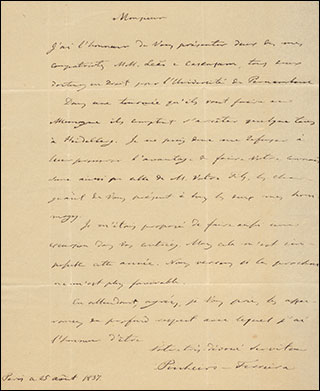 Monsieur
J'ai l'honneur de Vous présenter deux de mes
compatriotes M.M. Leão e Casangam, tous deux
docteurs en droit par l'Université de Pernambuco
Dans une tournée qu'ils vont faire en
Allemagne ils comptent s'arrêter quelque tems
à Heidelberg. Je ne puis donc me refuser à
leur procurer l'avantage de faire Votre connais
sance ainsi que celle de M. Votre fils, les char
geant de Vous présenter à tous les deux mes hom
mages.
Je m'étais proposé de faire enfin une
excursion dans vos contrées Mais cela m'est im-
possible cette année. Nous verrons si la prochaine
me sera plus favorable.
En attendant, agréez, je Vous prie, les assu
rances du profond respect avec lequel j'ai
l'honneur d'être
Votre très dévoué serviteur
Pinheiro-Ferreira
Paris ce 25 août 1837